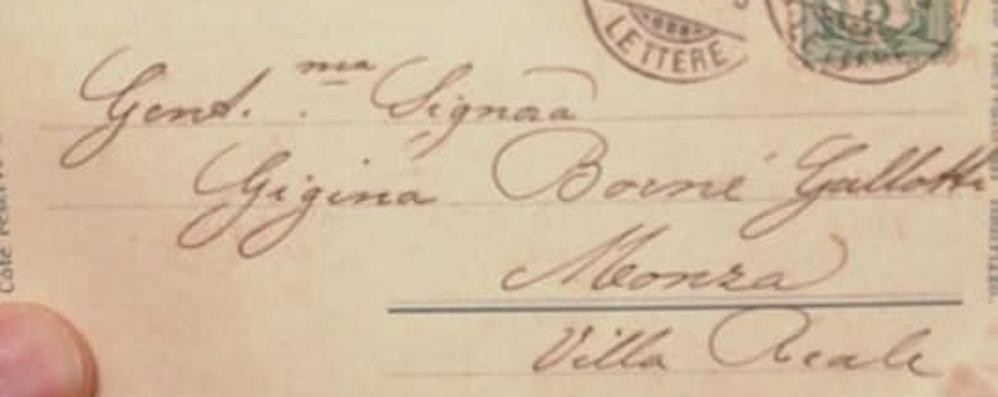 LETTERE
5
Gent.ma Signaa
Gigina Boiné Gallotti
Monza
Villa Reale